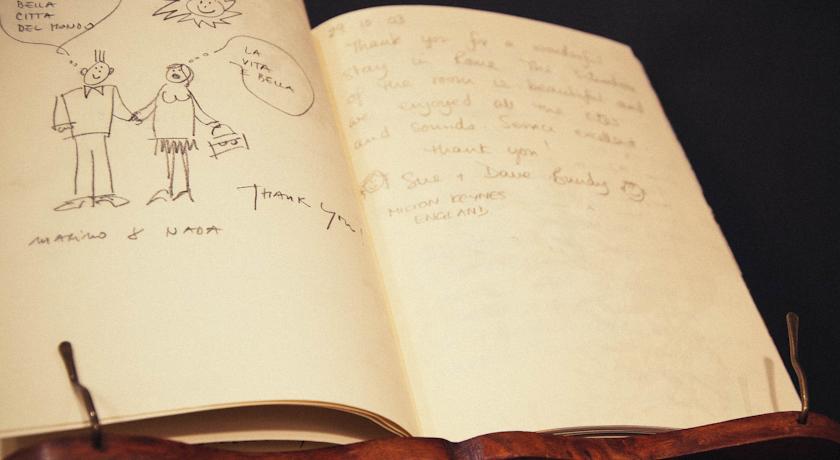 BELLA
CITTA
DEL MONDO
LA
VITA
È BELLA
THANK YOU!
MARINO & NADA
29 10 03
Thank you for a wonderful
stay in Rome The
of the room is beautiful and
we enjoyed all the
and sounds. Service excellent
thank you!
Sue + Dave
MILTON KEYNES
ENGLAND